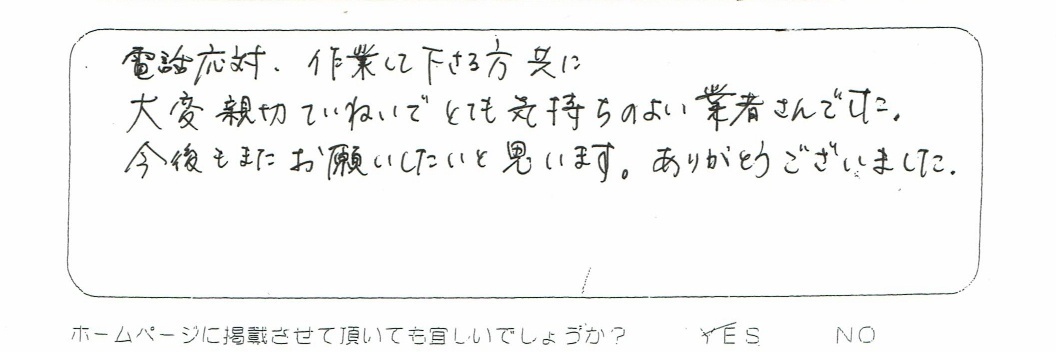 電話応対、作業して下さる方共に
大変親切ていねいでとても気持ちのよい業者さんでした。
今後もまたお願いしたいと思います。ありがとうございました.
ホームページに掲載させて頂いても宜しいでしょうか？ YES NO